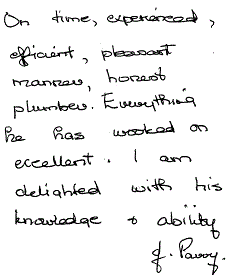 On time, experienced,
efficient, pleasant
manner, honest
plumber. Everything
he has worked on
excellent. I am
delighted with his
knowledge & ability
J. Pavoy.